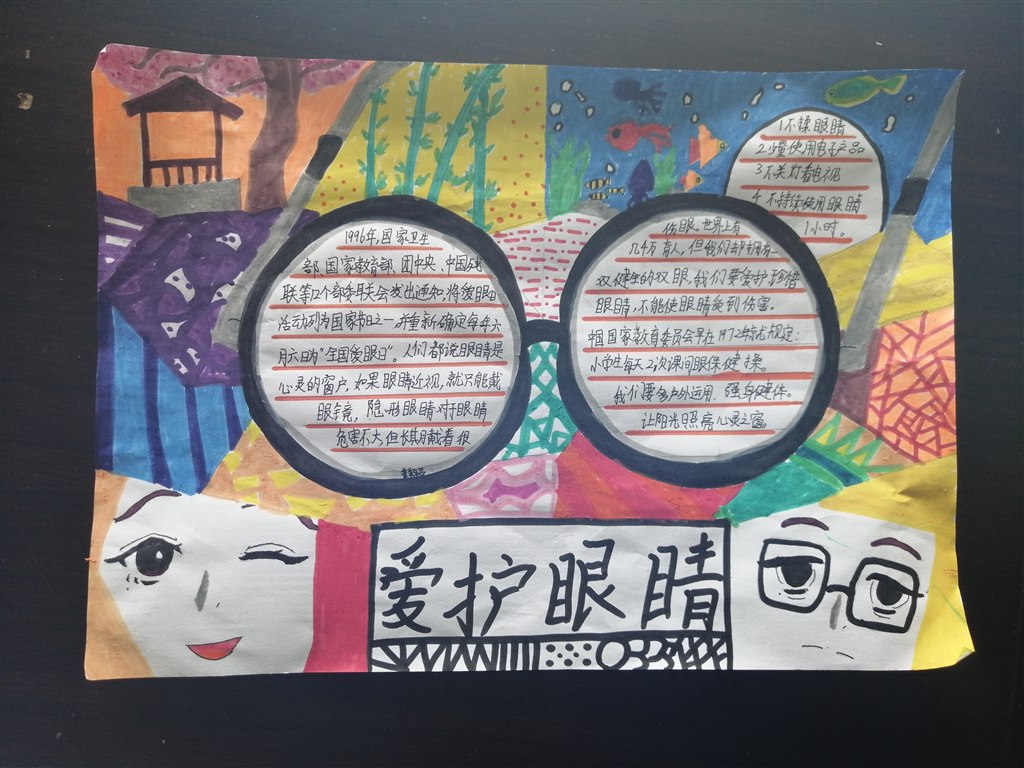 1996年,国家卫生
部、国家教育部、团中央、中国残
联等12个部委联合发出通知,将爱眼日
活动列为国家节日之一,并重新确定每年六
月六日为“全国爱眼日”。人们都说眼睛是
心灵的窗户,如果眼睛近视,就只能戴
眼镜,隐形眼睛对于眼睛
危害不大,但长期戴着很
伤眼。世界上有
几千万盲人,但我们却拥有一
双健全的双眼,我们要爱护珍惜
眼睛,不能使眼睛受到伤害。
中国国家教育委员会早在1972年就规定:
小学生每天2次课间眼保健操。
我们要多户外运用,强身健体。
让阳光照亮心灵之窗。
1不揉眼睛
2少量使用电子产品
3不关灯看电视
4不持续使用眼睛
1小时。
爱护眼睛